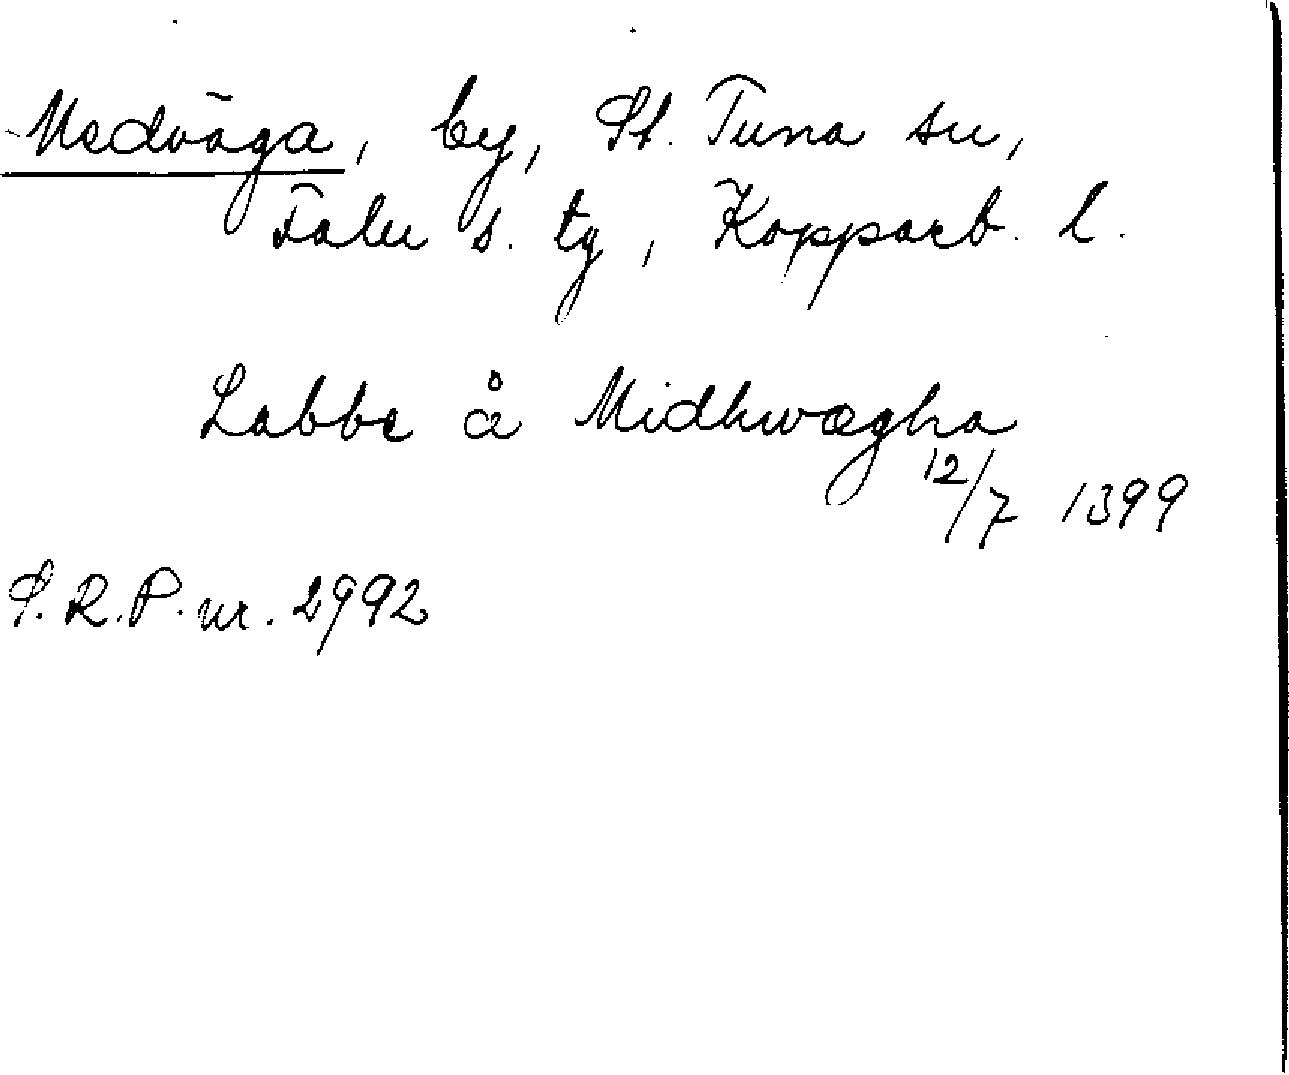 Medväga, by, St. Tuna sn,
Falu s. tg, Kopparb. l.
Labbe å Midhwægha
12/7 1399
S.R.P. nr. 2992